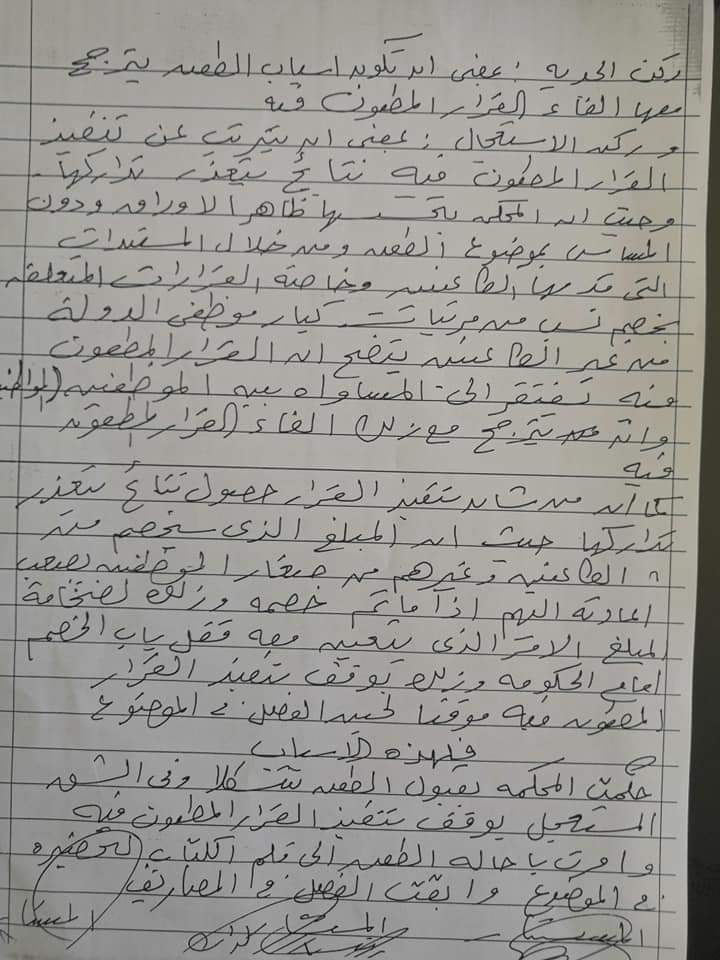 ركن الجدية : بمعنى ان تكون اسباب الطعن يترجح
معها الغاء القرار المطعون فيه
وركن الاستعجال : بمعنى ان يترتب عن تنفيذ
القرار المطعون فيه نتائج يتعذر تداركها.
وحيث ان المحكمة بتحسسها ظاهر الاوراق ودون
المساس بموضوع الطعن ومن خلال المستندات
التى قدمها الطاعنين وخاصة القرارات المتعلقة
بخصم نسب من مرتبات كبار موظفى الدولة
من غير الطاعنين يتضح ان القرار المطعون
فيه تفتقر الى المساواه بين الموظفين (المواطنين
وانه يترجح مع ذلك الغاء القرار المطعون
فيه
كما ان من شان تنفيذ القرار حصول نتائج يتعذر
تداركها حيث ان المبلغ الذى سيخصم من
الطاعنين وغيرهم من صغار الموظفين يصعب
اعادته اليهم اذا ما تم خصمه وذلك لضخامة
المبلغ الامر الذى يتعين معه قفل باب الخصم
امام الحكومه وذلك بوقف تنفيذ القرار
المطعون فيه موقتا لحين الفصل فى الموضوع
فلهذه الاسباب
حكمت المحكمه بقبول الطعن شكلا وفى الشق
المستعجل بوقف تنفيذ القرار المطعون فيه
وامرت باحالة الطعن الى قلم الكتاب لتحضيره
فى الموضوع وابقت الفصل فى المصاريف